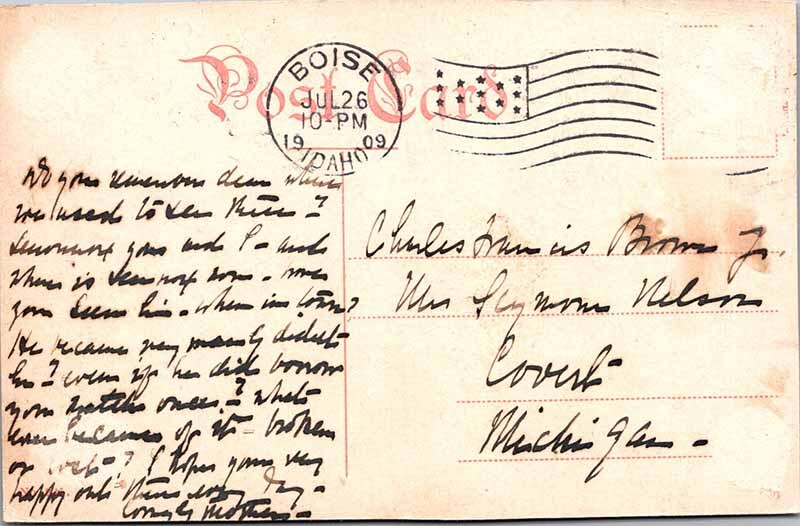 Post Card
BOISE
JUL 26
10-PM
1909
IDAHO
Do you remember dear when
we used to see this?
you and I - and
where is now - have
you seen him - when in town?
He became very didn't
he? even if he did borrow
your once? what
ever became of it - broken
or lost? I hope you're very
happy out there every day -
Lovingly Mother -
Charles Francis Brown Jr.
Mrs Seymour Nelson
Covert
Michigan -